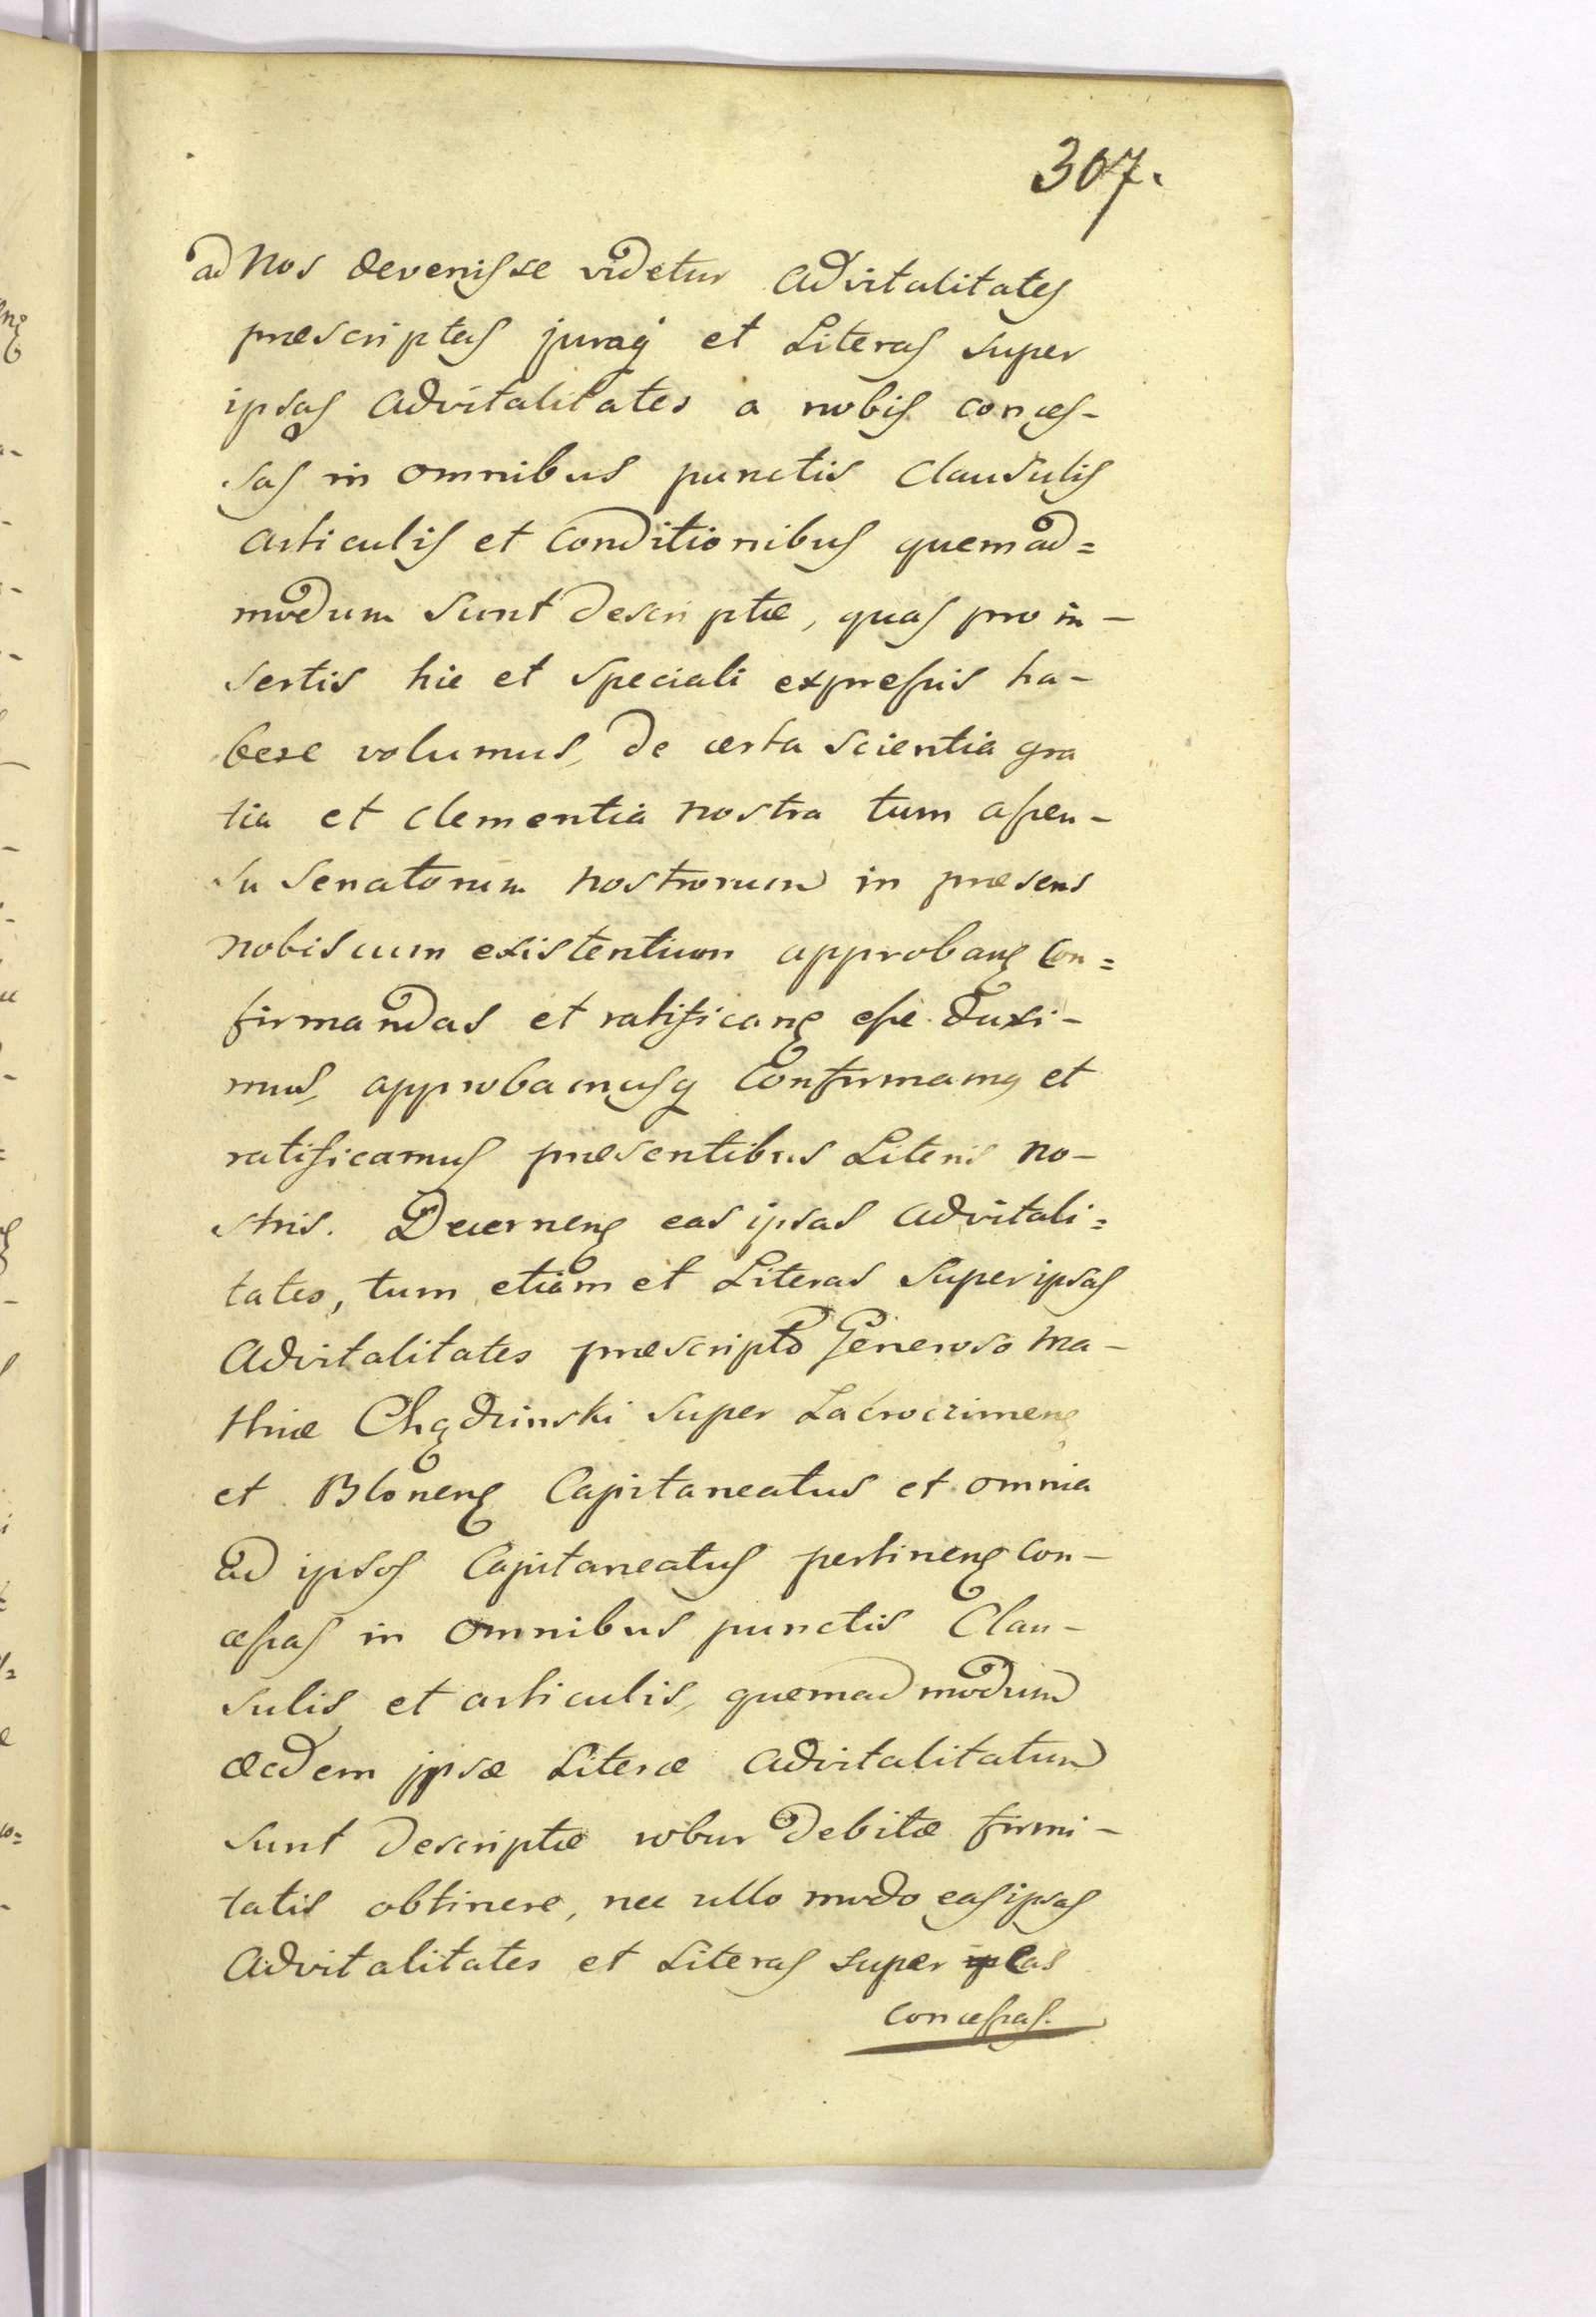 307.
ad Nos devenisse videtur Advitalitates
præscriptas juraq et Literas super
ipsas Advitalitates a nobis conces-
sas in omnibus punctis Clausulis
articulis et Conditionibus quemad=
modum sunt descriptæ, quas pro in-
sertis hic et speciali expressis ha-
bere volumus, de certa scientia gra
tia et clementia nostra tum assen-
su Senatorum nostrorum in præsens
nobiscum existentium approbang con=
firmandas et ratificang esse duxi-
mus, approbamusq Confirmamq et
ratificamus præsentibus Literis no-
stris. Decerneng eas ipsas advitali=
tates, tum etiam et Literas super ipsas
Advitalitates præscripto Generoso Ma-
thiæ Chądzinski super Zacroczimeng
et Błoneng Capitaneatus et omnia
ad ipsos Capitaneatus pertineng con-
cessas in omnibus punctis Clau-
sulis et articulis, quemadmodum
eædem ipsæ Literæ Advitalitatum
sunt descriptæ robur debitæ firmi-
tatis obtinere, nec ullo modo eas ipsas
Advitalitates et Literas super eas
concessas.